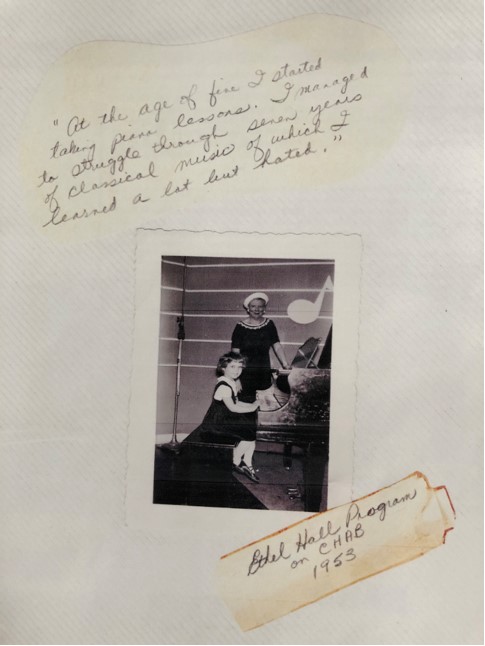 "At the age of five I started
taking piano lessons. I managed
to struggle through seven years
of classical music of which I
learned a lot but hated."
Ethel Hall Program
on CHAB
1953